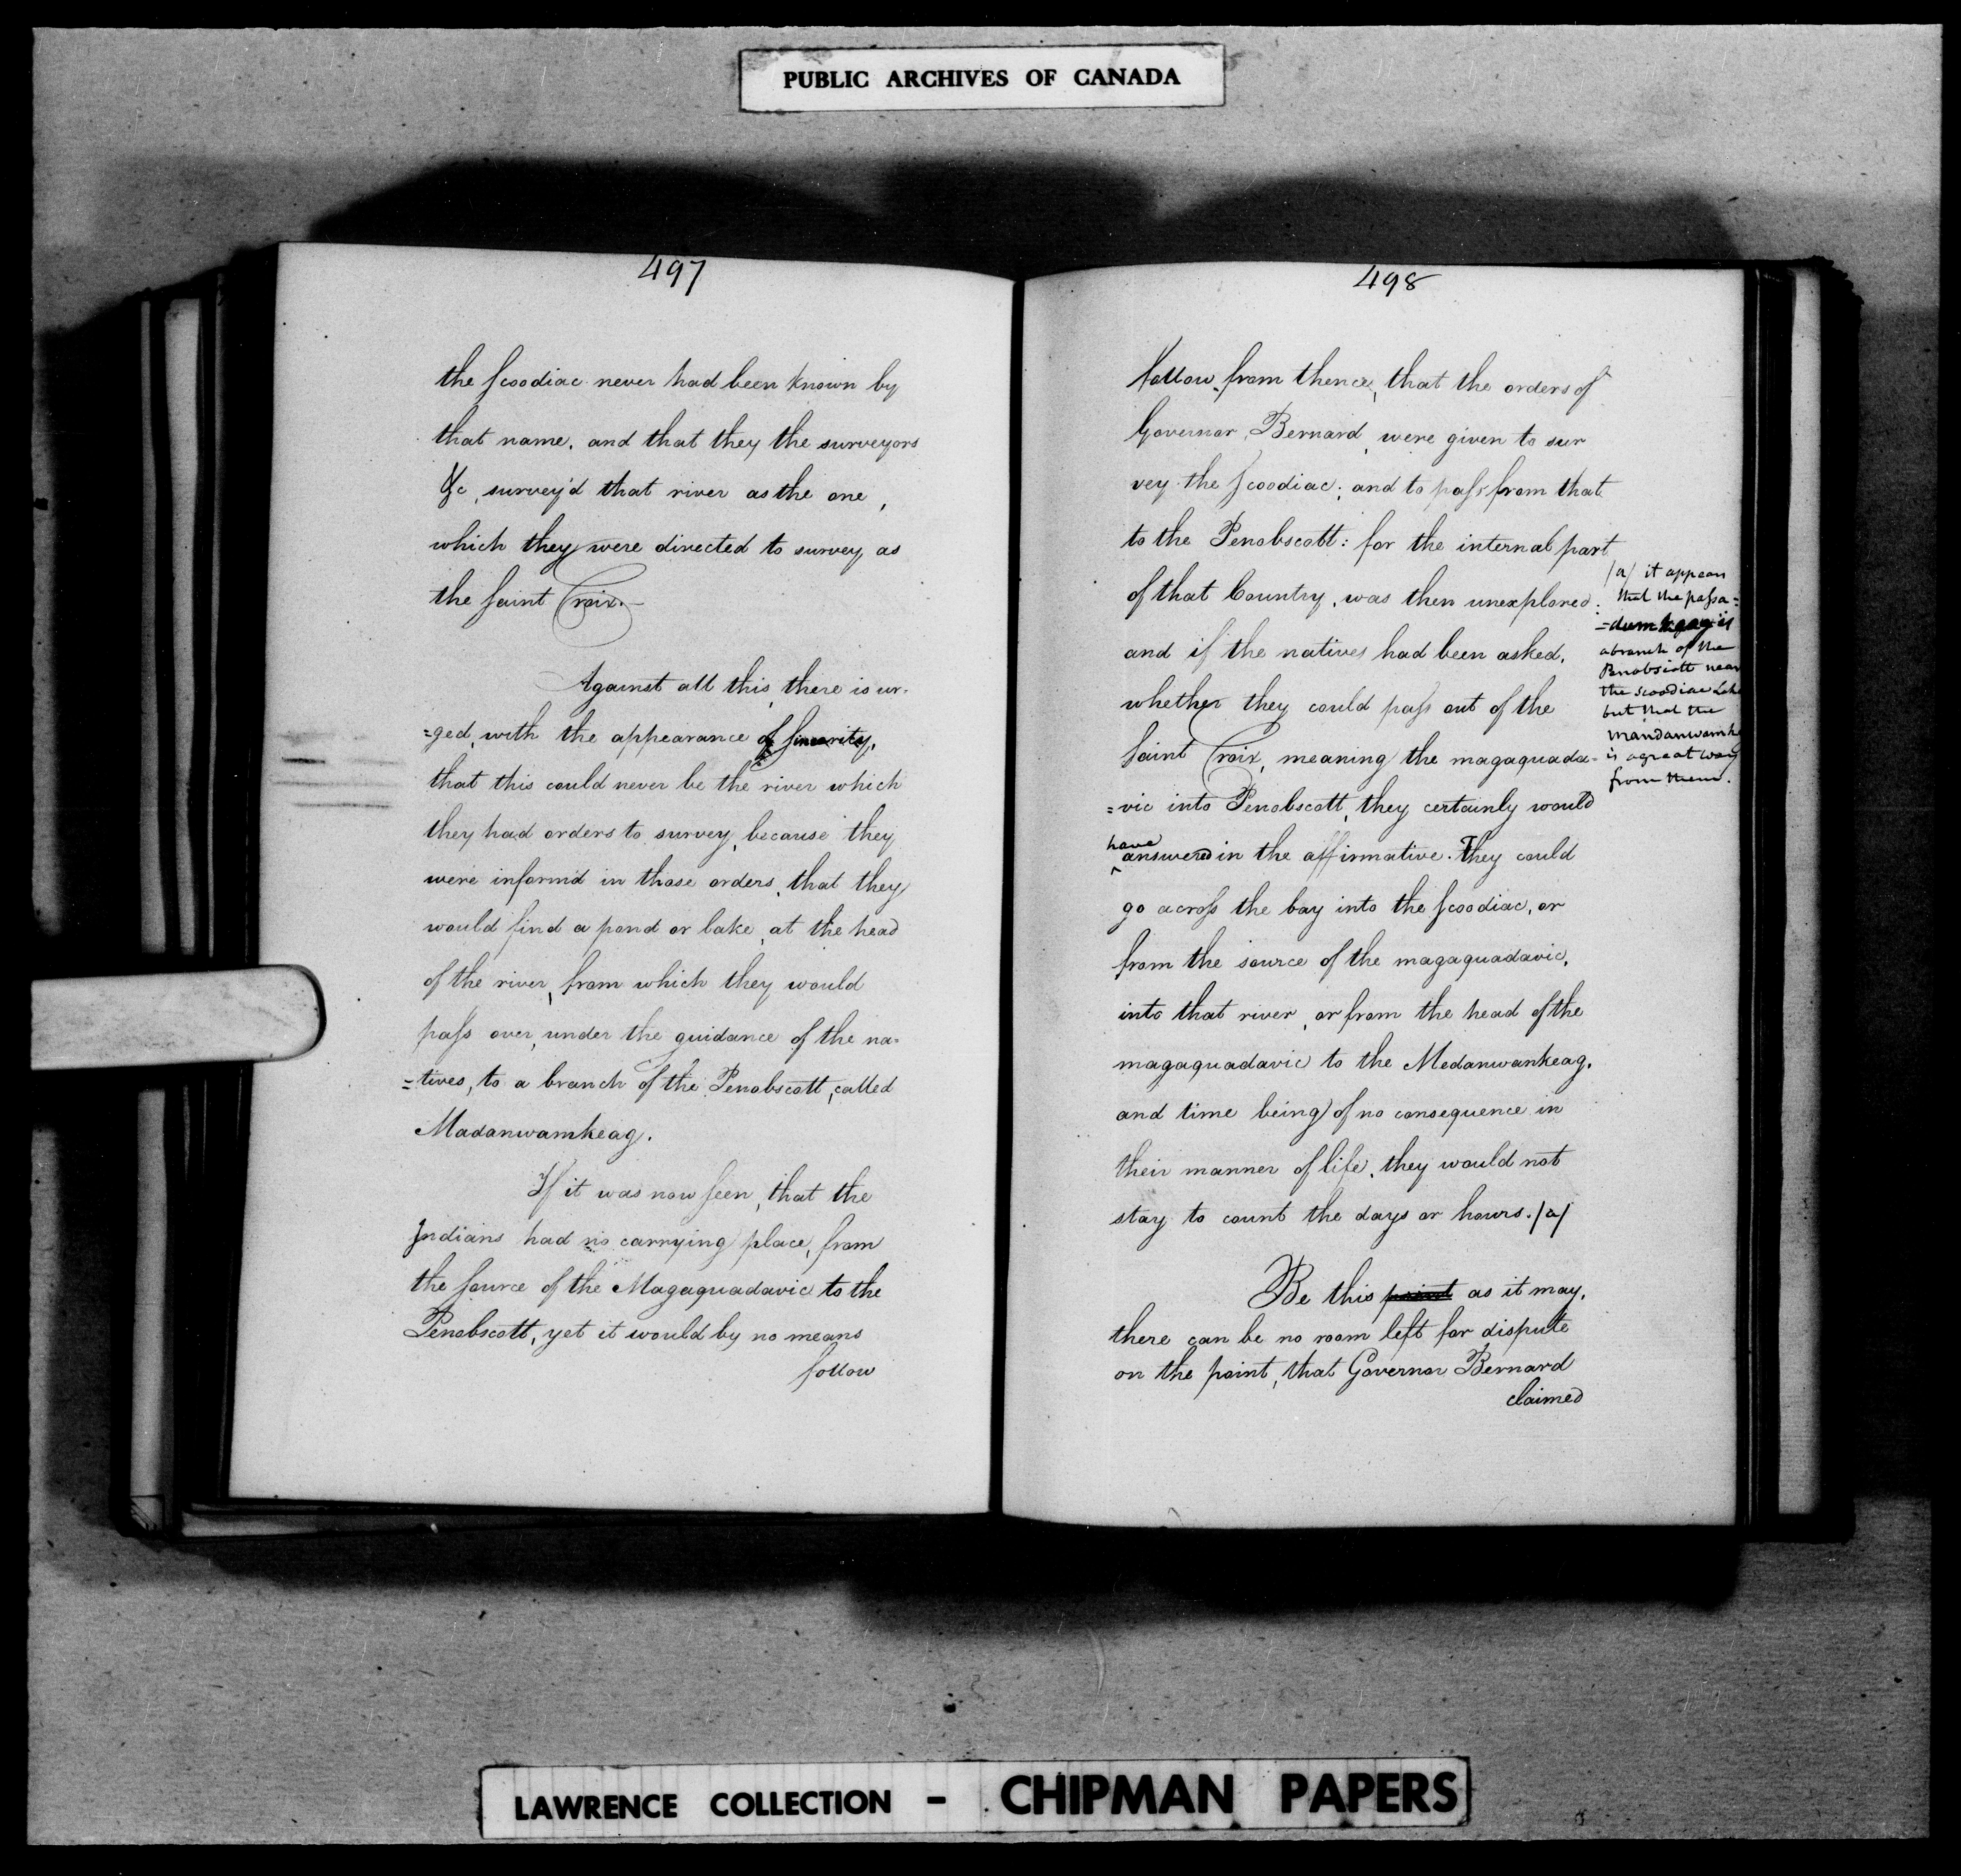 PUBLIC ARCHIVES OF CANADA
497
the Scoodiac never had been known by
that name, and that they the surveyors
&c, survey'd that river as the one,
which they were directed to survey as
the Saint Croix.—
Against all this, there is ur-
=ged, with the appearance of Sincerity,
that this could never be the river which
they had orders to survey, because they
were inform'd in those orders, that they
would find a pond or lake, at the head
of the river, from which they would
pass over, under the guidance of the na=
=tives, to a branch of the Penobscott, called
Madanwamkeag.
If it was now seen, that the
Indians had no carrying place, from
the source of the Magaquadavic to the
Penobscott, yet it would by no means
follow
498
follow from thence, that the orders of
Governor Bernard, were given to sur
vey the Scoodiac; and to pass from that
to the Penobscott: for the internal part
of that Country, was then unexplored:
and if the natives had been asked,
whether they could pass out of the
Saint Croix, meaning the magaquada-
=vic into Penobscott, they certainly would
have
answered in the affirmative. They could
go across the bay into the Scoodiac, or
from the source of the magaquadavic,
into that river, or from the head of the
magaquadavic to the Medanwankeag,
and time being of no consequence in
their manner of life, they would not
stay to count the days or hours. /a/
Be this point as it may,
there can be no room left for dispute
on the point, that Governor Bernard
claimed
/a/ it appears
that the passa=
=dumkgag is
a branch of the
Penobscott near
the Scoodiac Lake
but that the
Mandanwamk
is a great way
from them.
LAWRENCE COLLECTION - CHIPMAN PAPERS